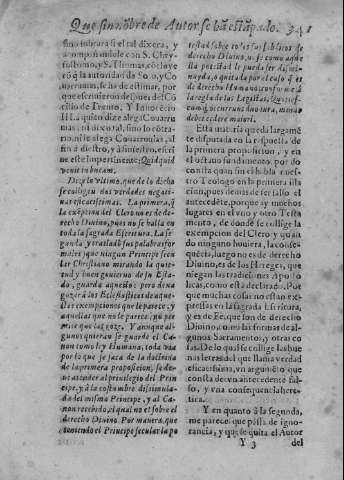 Que sin nõbre de Autor se hã estãpado. 341
sino mirara si el tal dixera, y
acompañandole con S. Chry-
sostomo, y S. Thomas, coteje
rõ q̃ la autoridad de Soto, y Co
uarruuias, se ha de estimar, por
que escriuieron despues del Cõ
cilio de Trento, Y Inocẽcio
III. a quien dize alega Couarru
uias, ni dixo tal, sino lo cõtra-
rio, ni le alega Couarruuias, al
fin a diestro, y a siniestro, escri
ue este impertinente: Quid quid
venit in buccam.
Dize lo vltimo, que de lo dicho
se colligen dos verdades negati-
uas eficacissimas. La primera, q̃
la exẽpcion del Clero no es de de-
recho Diuino, pues no se halla en
toda la sagrada Escritura. La se-
gunda, y traslado sus palabras for
males) que ningun Principe secu
lar Christiano mirando la quie-
tud y buen gouierno de su Esta-
do, guarda aquello: pero dexa
gozar a los Eclesiasticos de aque-
llas exempciones que le parece, y
aquellas que no le parece, no per
mite que las goze. Y aunque al-
gunos quieran se guarde el Ca-
non comoly, y Humana, todavia
por lo que se saca de la doctrina
de la primera proposicion, se de-
ue atender al priuilegio del Prin
cipe, y a la costumbre dissimula-
da del mismo Principe, y al Ca-
non recebido, el qual no es sobre el
derecho Diuino. Por manera, que
teniendo el Principe secular la po
testad sobre todos sus subditos de
derecho Diuino, assi como aque
sta potestad le pueda ser dismi-
nuyda, o quitada por el caso q̃ es
de derecho Humano, conforme à
la regla de los Legistas, Quotiès
concurrant duo iura, minus
debet cedere maiori.
Esta materia queda largamẽ
te disputada en la respuesta de
la primera proposicion, y en
el octauo fundamento, por dõ
consta quan sin cũ habla nues-
tro Teologo en la primera illa
cion, pues demas de ser falso el
antecedẽte, porque ay muchos
lugares en el vno y otro Testa
mento, de donde se collige la
exempcion del Clero, y quan-
do ninguno huuiera, la conse-
quẽcia, luego no es de derecho
Diuino, es de los Hereges, que
niegan las tradiciones Aposto
licas, como està declarado. Por
que muchas cosas no estan ex-
pressas en la sagrada Escritura,
y es de Fe, que son de derecho
Diuino, como las formas de al-
gunos Sacramentos, y otras co
sas. De lo qual se collige las bue
nas letras del que llama verdad
eficacissima, en vn argumẽto que
consta de vn antecedente fal-
so, y vna consequencia here-
tica.
Y en quanto à la segunda,
me parece que passa de igno-
rancia, y que se quita el Autor
Y 3 del